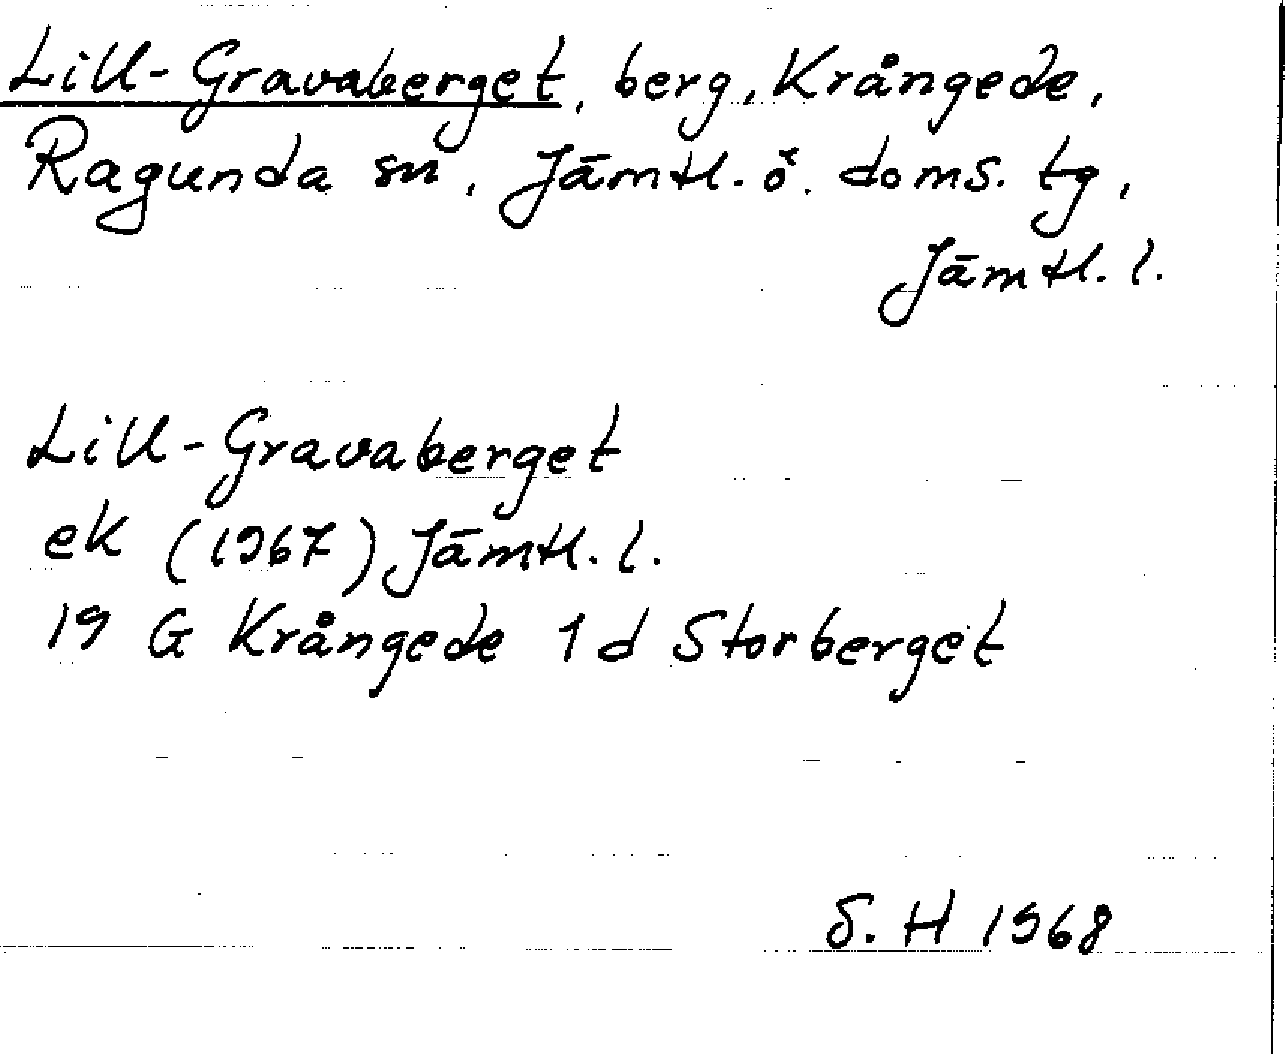 Lill-Gravaberget, berg, Krångede,
Ragunda sn, Jämtl. ö. doms. tg,
Jämtl. l.
Lill-Gravaberget
ek (1967) Jämtl. l.
19 G Krångede 1 d Storberget
S. H 1968